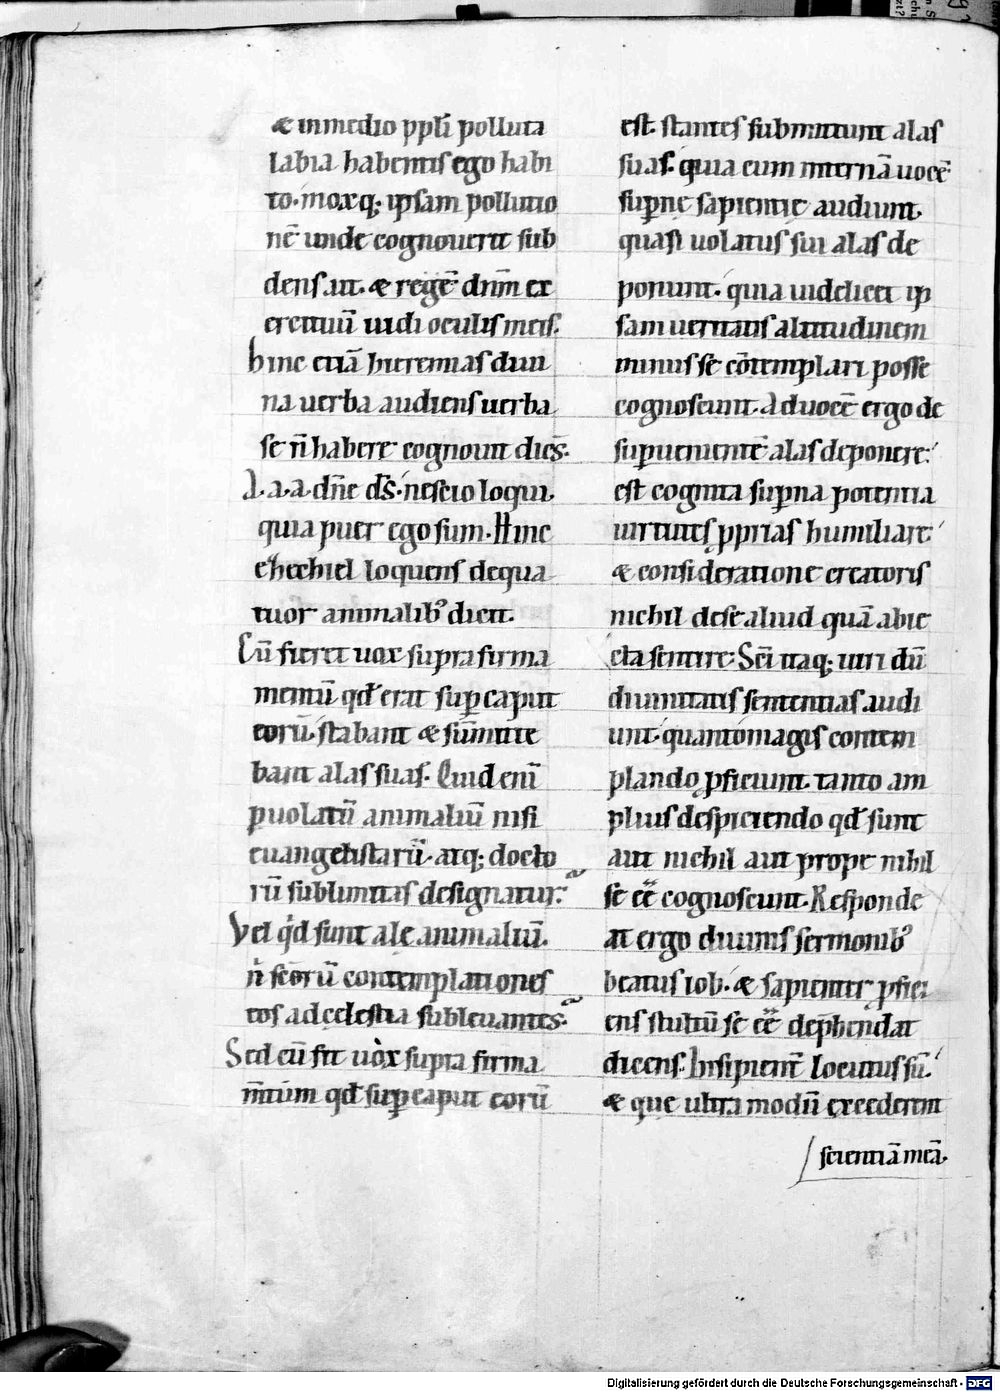 & inmedio ppli polluta
labia habentis ego habi
to. moxq; ipsam pollutio
nē unde cognouerit sub
dens ait. & regē dn̄m ex
ercituū uidi oculis meis.
hinc etiā hieremias diui
na uerba audiens uerba
se n̄ habere cognouit dicēs.
A. a. a. dn̄e ds̄. nescio loqui.
quia puer ego sum. Hinc
ehzechiel loquens dequa
tuor animalibꝰ dicit.
Cū fieret uox supra firma
mentū qd̄ erat sup̱ caput
eorū. stabant & sūmitte
bant alas suas. Quid enī
p̱uolatū animaliū nisi
euangelistarū. atq; docto
rū sublimitas designatur.
Vel qd̄ sunt alę animaliū.
n̄ scōrū contemplationes
eos adcęlestia subleuantes.
Sed cū fit uox supra firma
m̄tum qd̄ sup̱ caput eorū
est. stantes submittunt alas
suas. quia cum internā uocē
sup̱nę sapientie audiunt.
quasi uolatus sui alas de
ponunt. quia uidelicet ip
sam ueritatis altitudinem
minus se cōtemplari posse
cognoscunt. Aduocē ergo de
sup̱ uenientē alas deponere.
est cognita sup̱na potentia
uirtutes pprias humiliare.
& consideratione creatoris
nichil dese aliud quā abie
cta sentire. Sc̄i itaq; uiri dū
diuinitatis sententias audi
unt. quantomagis contem
plando pficiunt. tanto am
plius despiciendo qd̄ sunt
aut nichil aut prope nihil
se eē cognoscunt. Responde
at ergo diuinis sermonibꝰ
beatus iob. & sapienter pfici
ens stultū se eē dep̱hendat
dicens. Insipientē locutus sū.
& que ultra modū excederent
scientiā meā.
Digitalisierung gefördert durch die Deutsche Forschungsgemeinschaft - DFG